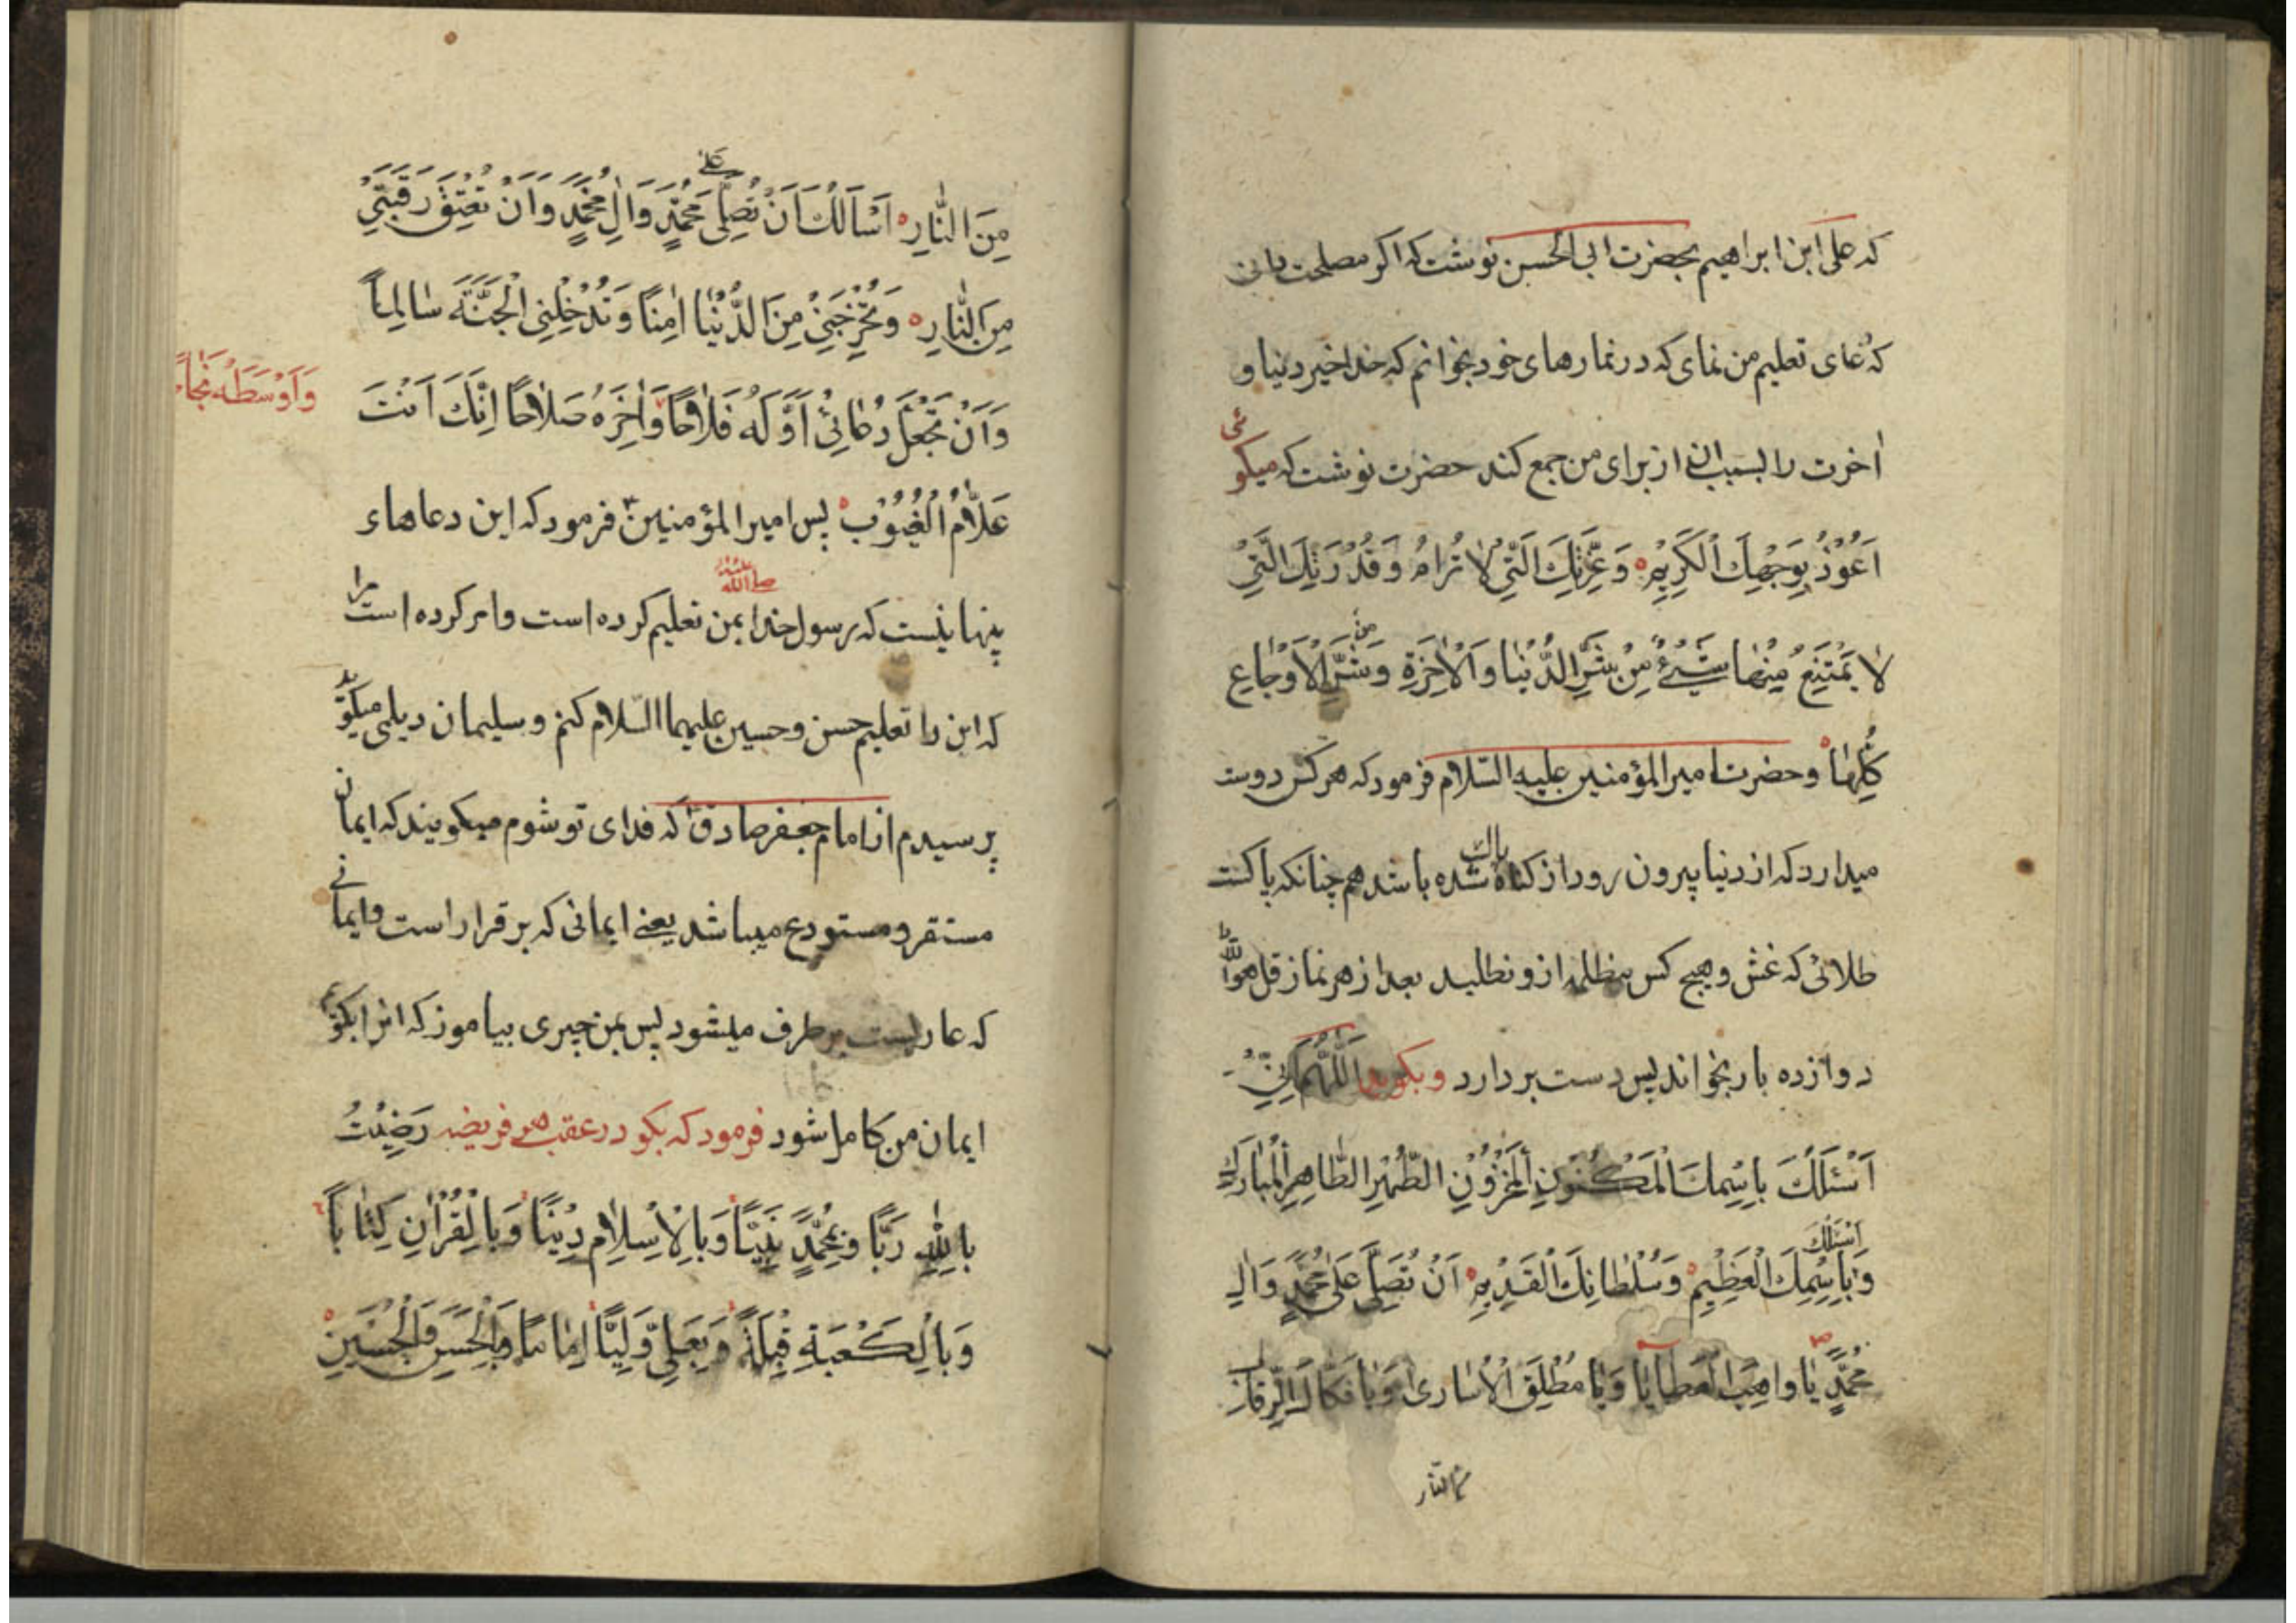 که علی ابن ابراهیم بحضرت ابی الحسن نوشت که اکر مصلحت دانی
که دعای تعلیم من نمای که در نمازهای خود بخوانم که خدا خیر دنیا و
اخرت را بسبب ان از برای من جمع کند حضرت نوشت که میکوئی
اَعُوذُ بِوَجْهِكَ الْكَرِيمِ وَعِزَّتِكَ الَّتِي لَا تُرَامُ وَقُدْرَتِكَ الَّتِي
لَا يَمْتَنِعُ مِنْهَا شَيْءٌ مِنْ شَرِّ الدُّنْيَا وَالْاٰخِرَةِ وَمِنْ شَرِّ الْاَوْجَاعِ
كُلِّهَا وحضرت امیر المؤمنین علیه السّلام فرمود که هر کس دوست
میدارد که از دنیا بیرون رود از کناه پاک شده باشد هم چنانکه پاکست
طلائی که غش و هیچ کس بمظلمه از و نطلبد بعد از هر نماز قل هو الله
دوازده بار بخواند پس دست بر دارد و بکوید اَللّٰهُمَّ اِنِّي
اَسْئَلُكَ بِاسْمِكَ الْمَكْنُونِ الْمَخْزُونِ الطُّهْرِ الطَّاهِرِ الْمُبَارَكِ
وَ اَسْئَلُكَ بِاسْمِكَ الْعَظِيمِ وَسُلْطَانِكَ الْقَدِيمِ اَنْ تُصَلِّيَ عَلَى مُحَمَّدٍ وَاٰلِ
مُحَمَّدٍ يَا وَاهِبَ الْعَطَايَا وَيَا مُطْلِقَ الْاُسَارَى وَيَا فَكَّاكَ الرِّقَابِ
من النار
مِنَ النَّارِ اَسْاَلُكَ اَنْ تُصَلِّيَ عَلَى مُحَمَّدٍ وَاٰلِ مُحَمَّدٍ وَاَنْ تُعْتِقَ رَقَبَتِي
مِنَ النَّارِ وَتُخْرِجَنِي مِنَ الدُّنْيَا اٰمِنًا وَتُدْخِلَنِي الْجَنَّةَ سَالِمًا
وَاَنْ تَجْعَلَ دُعَائِي اَوَّلَهُ فَلَاحًا وَاٰخِرَهُ صَلَاحًا اِنَّكَ اَنْتَ
وَاَوْسَطَهُ نَجَاحًا
عَلَّامُ الْغُيُوبِ پس امیر المؤمنین فرمود که این دعاهاء
پنهانیست که رسول خدا صلی الله علیه بمن تعلیم کرده است و امر کرده است مرا
که این را تعلیم حسن و حسین علیهما السّلام کنم و سلیمان دیلمی میکوید
پرسیدم از امام جعفر صادق که فدای تو شوم میکویند که ایمان
مستقر و مستودع میباشد یعنی ایمانی که بر قرار است و ایمانی
که عاریست بر طرف میشود پس بمن چیزی بیاموز که انرا بکویم
ایمان من کامل شود فرمود که بکو در عقب هر فریضه رَضِيتُ
بِاللّٰهِ رَبًّا وَبِمُحَمَّدٍ نَبِيًّا وَبِالْاِسْلَامِ دِينًا وَبِالْقُرْاٰنِ كِتَابًا
وَبِالْكَعْبَةِ قِبْلَةً وَبِعَلِيٍّ وَلِيًّا اِمَامًا وَبِالْحَسَنِ وَالْحُسَيْنِ